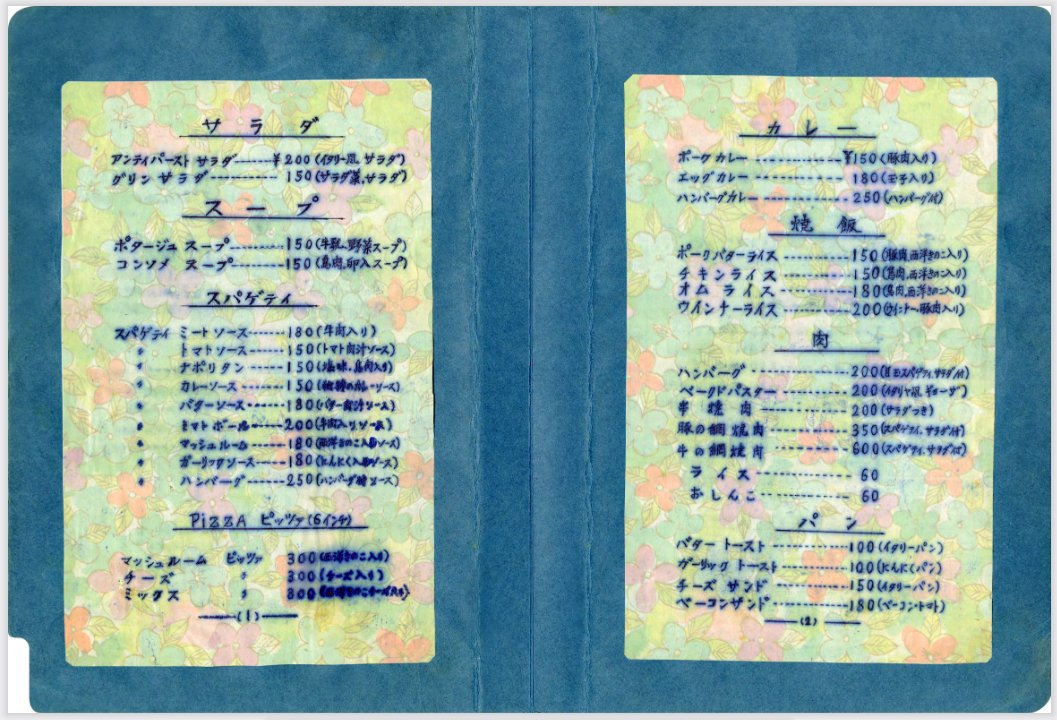 サラダ
アンティパースト サラダ------¥200(イタリー風.サラダ)
グリン サラダ-------- 150(サラダ菜.サラダ)
スープ
ポタージュ スープ------150(牛乳.野菜スープ)
コンソメ スープ------150(鳥肉.卵入スープ)
スパゲティ
スパゲティ ミートソース------180(牛肉入り)
〃 トマトソース------150(トマト肉汁ソース)
〃 ナポリタン------150(塩味.鳥肉入り)
〃 カレーソース------150(カレーソース)
〃 バターソース------180(バター肉汁ソース)
〃 トマトボール------200(牛肉入りソース)
〃 マッシュルーム------180(西洋きのこ入ソース)
〃 ガーリックソース------180(にんにく入ソース)
〃 ハンバーグ------250(ハンバーグソース)
PIZZA ピッツァ(6インチ)
マッシュルーム ピッツァ 300(西洋きのこ入り)
チーズ 〃 300(チーズ入り)
ミックス 〃 300(西洋きのこチーズ)
(1)
カレー
ポークカレー ------------¥150(豚肉入り)
エッグカレー ------------ 180(玉子入り)
ハンバーグカレー------------ 250(ハンバーグ付)
焼飯
ポークバターライス------------150(豚肉.西洋きのこ入り)
チキンライス------------150(鳥肉.西洋きのこ入り)
オムライス------------180(鳥肉.西洋きのこ入り)
ウインナーライス------------200(ウインナー.豚肉入り)
肉
ハンバーグ------------200(スパゲティ.サラダ付)
ベークドパスター------------200(イタリヤ風.ギョーザ)
串焼肉------------200(サラダつき)
豚の網焼肉------------350(スパゲティ.サラダ付)
牛の網焼肉------------600(スパゲティ.サラダ付)
ライス------------ 60
おしんこ------------ 60
パン
バタートースト------------100(イタリーパン)
ガーリックトースト------------100(にんにくパン)
チーズサンド------------150(イタリーパン)
ベーコンサンド------------180(ベーコン.トマト)
(2)